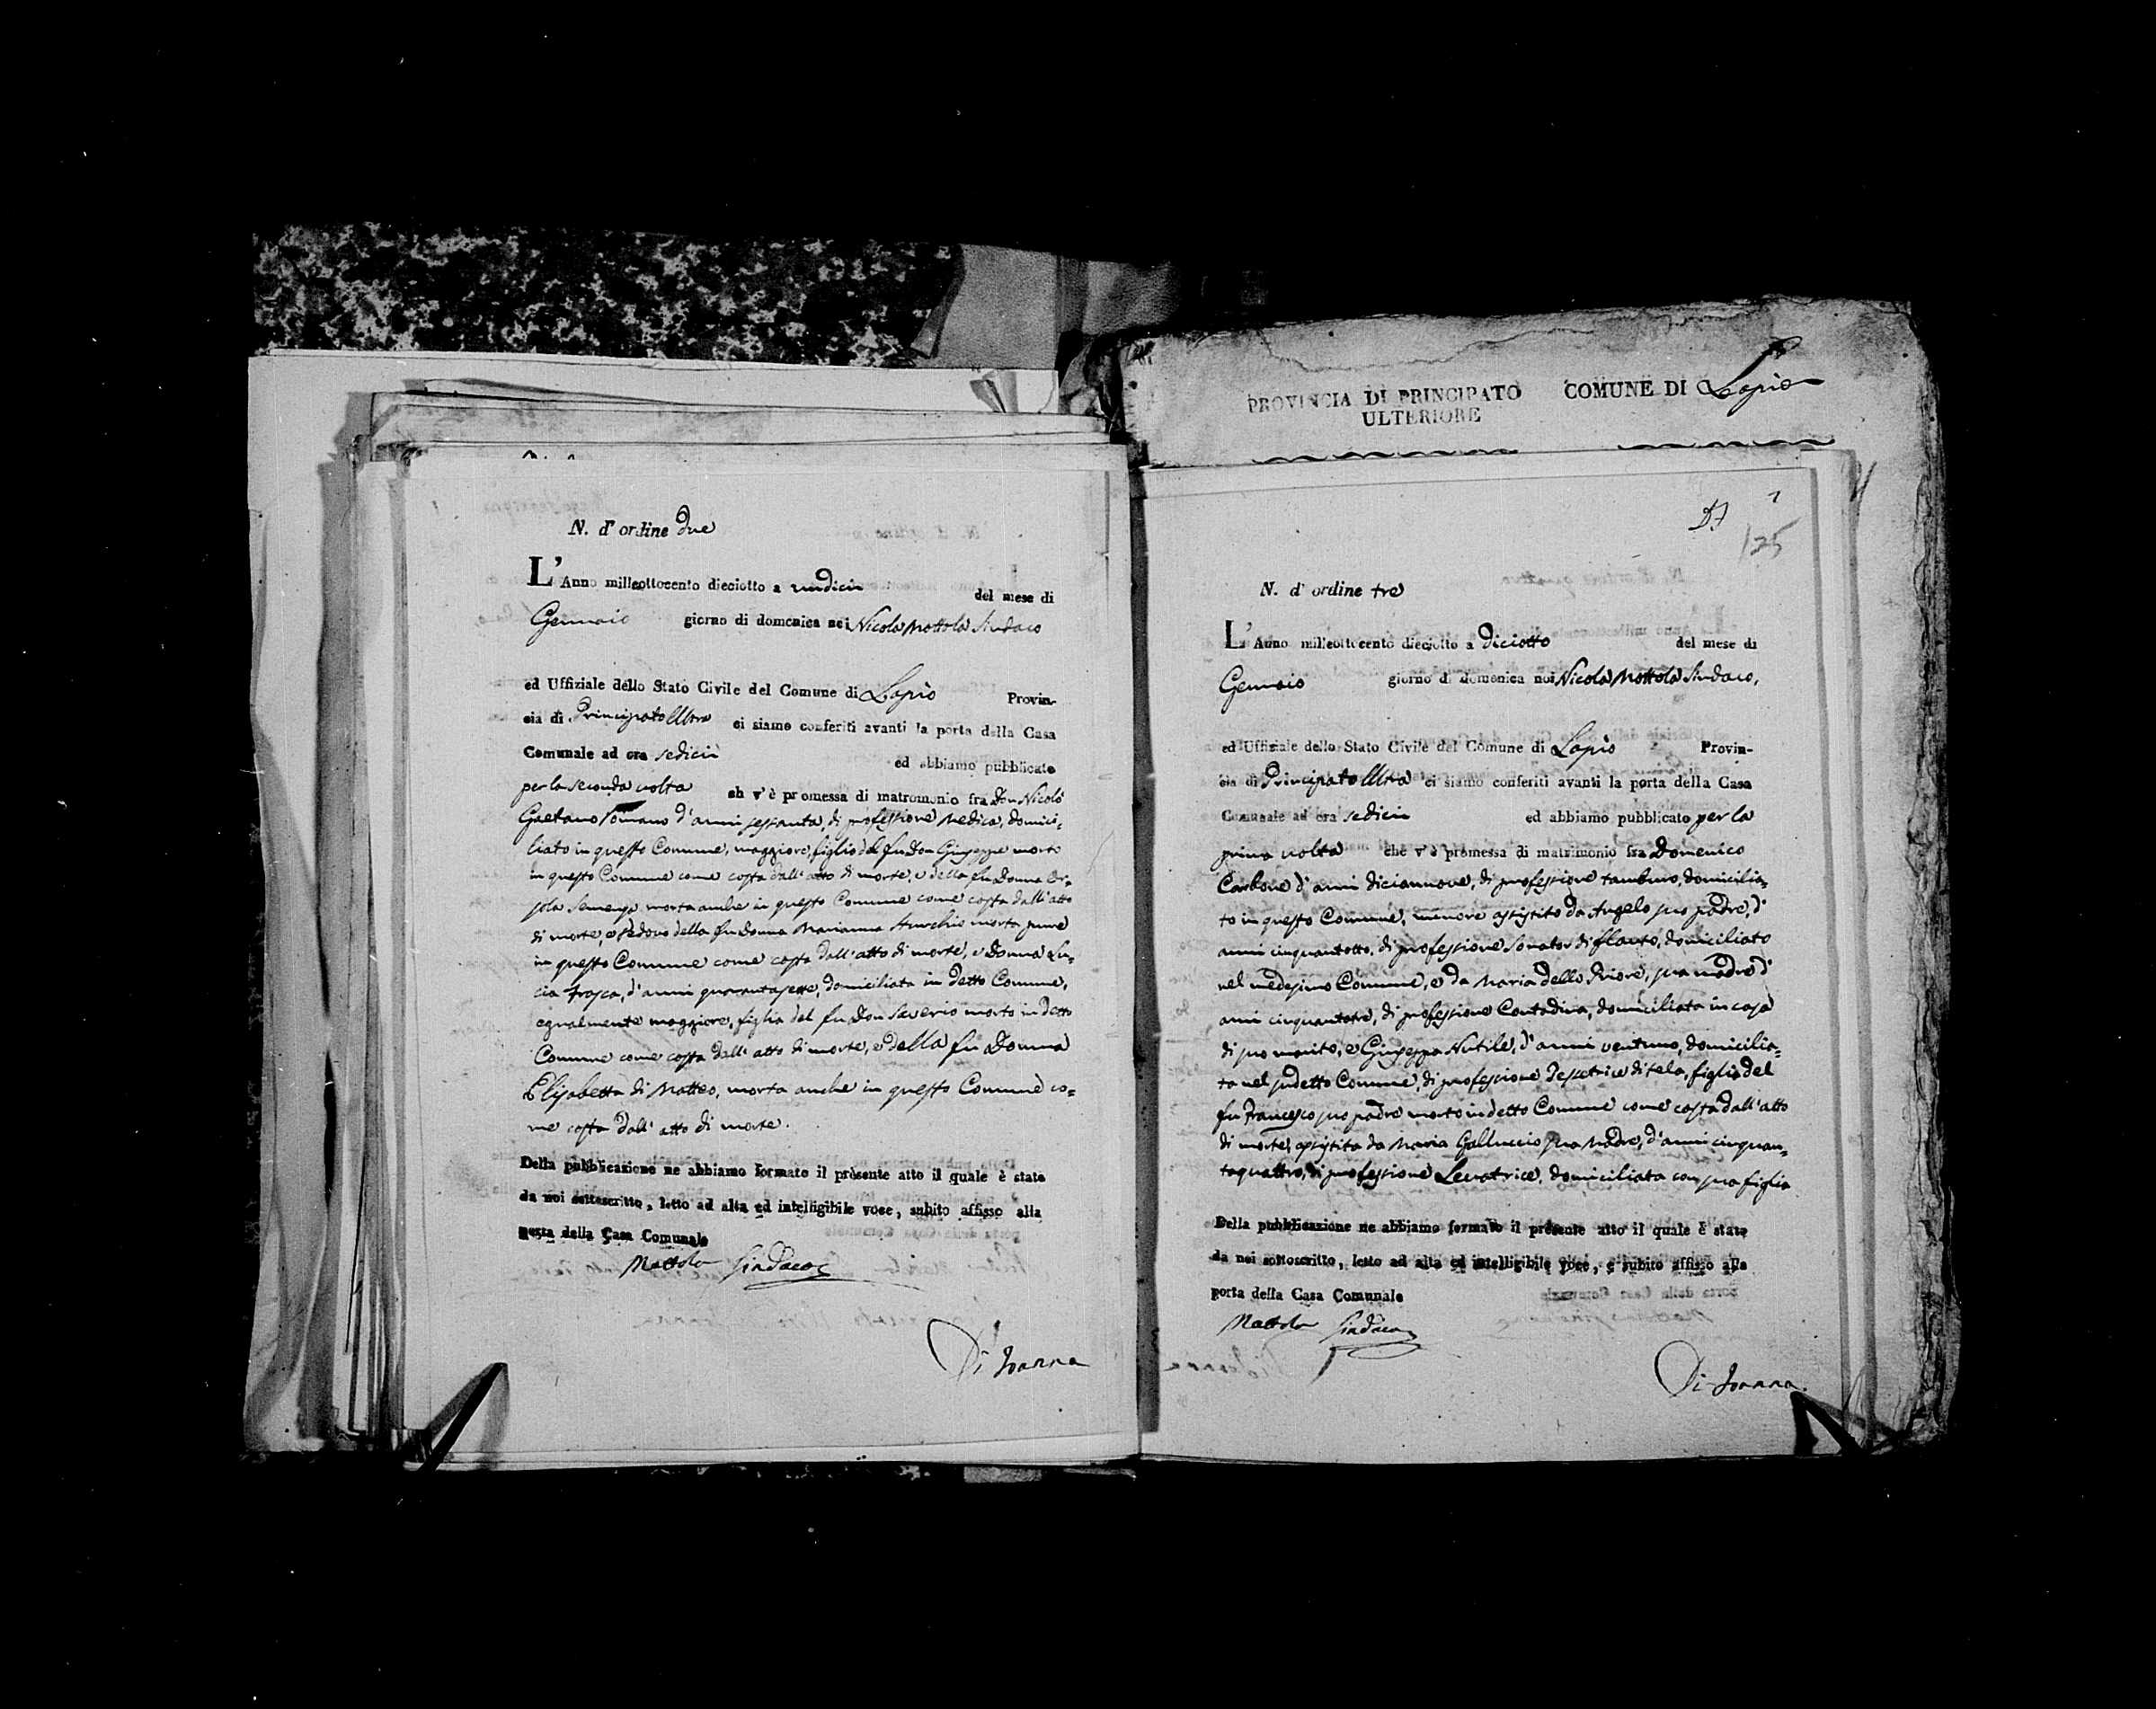 N. d'ordine due
L'Anno milleottocento dieciotto a undici del mese di
Gennaio giorno di domenica noi Nicola Mottola Sindaco
ed Uffiziale dello Stato Civile del Comune di Lapio Provin-
cia di Principato Ultra ci siamo conferiti avanti la porta della Casa
Comunale ad ora sedici ed abbiamo pubblicato
per la seconda volta ch v'è promessa di matromonio fra Don Nicolò
Gaetano Romano d'anni sessanta, di professione Medico, domici-
liato in questo Comune, maggiore, figlio del fu Don Giuseppe morto
in questo Comune come costa dall'atto di morte, e della fu Donna Or-
sola morta anche in questo Comune come costa dall'atto
di morte, e vedovo della fu Donna Marianna morta pure
in questo Comune come costa dall'atto di morte, e Donna Lu-
cia Frasca, d'anni quarantasette, domiciliata in detto Comune,
egualmente maggiore, figlia del fu Don Saverio morto in detto
Comune come costa dall'atto di morte, e della fu Donna
Elisabetta di Matteo, morta anche in questo Comune co-
me costa dall'atto di morte.
Della pubblicazione ne abbiamo formato il presente atto il quale è stato
da noi sottoscritto, letto ad alta ed intelligibile voce, subito affisso alla
porta della Casa Comunale
Mottola Sindaco
Di Ioanna
PROVINCIA DI PRINCIPATO ULTERIORE COMUNE DI Lapio
125
N. d'ordine tre
L'Anno milleottocento dieciotto a diciotto del mese di
Gennaio giorno di domenica noi Nicola Mottola Sindaco,
ed Uffiziale dello Stato Civile del Comune di Lapio Provin-
cia di Principato Ultra ci siamo conferiti avanti la porta della Casa
Comunale ad ora sedici ed abbiamo pubblicato per la
prima volta che v'è promessa di matrimonio fra Domenico
Carbone d'anni diciannove, di professione tamburo, domicilia-
to in questo Comune, minore assistito da Angelo suo padre, d'
anni cinquantotto, di professione sonator di flauto, domiciliato
nel medesimo Comune, e da Maria dello Priore, sua madre d'
anni cinquantatre, di professione Contadina, domiciliata in casa
di suo marito, e Giuseppa Nutile, d'anni ventuno, domicilia-
ta nel sudetto Comune, di professione Tessitrice di tela, figlia del
fu Francesco suo padre morto in detto Comune come costa dall'atto
di morte, assistita da Maria Galluccio sua Madre, d'anni cinquan-
taquattro, di professione Levatrice, domiciliata con sua figlia
Della pubblicazione ne abbiamo formato il presente atto il quale è stato
da noi sottoscritto, letto ad alta ed intelligibile voce, e subito affisso alla
porta della Casa Comunale
Mottola Sindaco
Di Ioanna